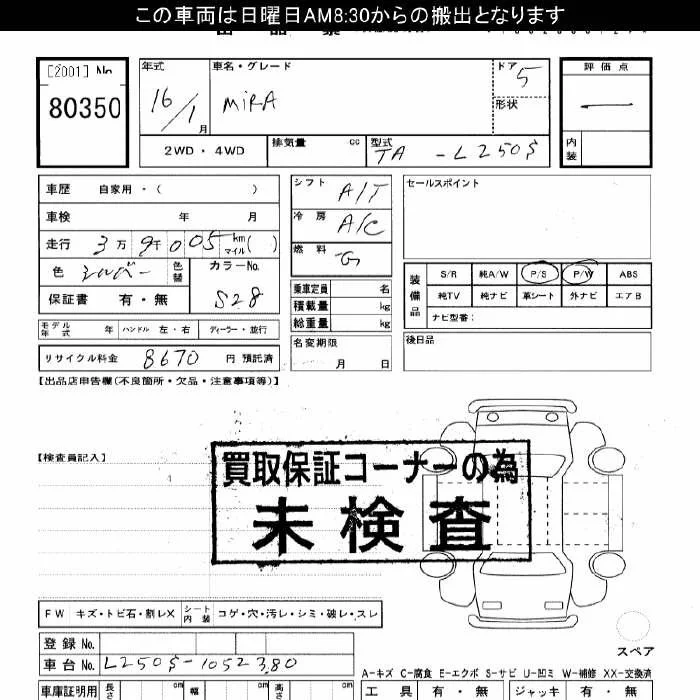 この車両は日曜日AM8:30からの搬出となります
[2001] No
80350
年式 車名・グレード ドア 評価点
16/1月 MiRA 5 —
形状
2WD・4WD 排気量 cc 型式 TA-L250S 内装
車歴 自家用・( ) シフト A/T セールスポイント
車検 年 月 冷房 A/C
走行 3万9千005 km マイル( ) 燃料 G
色 シルバー 色替 カラーNo. S28
保証書 有・無
乗車定員 名
積載量 kg
総重量 kg
装備品 S/R 純A/W P/S P/W ABS
純TV 純ナビ 革シート 外ナビ エアB
ナビ型番:
モデル年式 年 ハンドル 左・右 ディーラー・並行
名変期限 月 日
後日品
リサイクル料金 8670 円 預託済
【出品店申告欄(不良箇所・欠品・注意事項等)】
【検査員記入】
買取保証コーナーの為
未検査
FW キズ・トビ石・割レX シート内装 コゲ・穴・汚レ・シミ・破レ・スレ
登録No.
車台No. L250S-1052380
スペア
A-キズ C-腐食 E-エクボ S-サビ U-凹ミ W-補修 XX-交換済
車庫証明用 長さ cm 幅 cm 高さ cm
工具 有・無 ジャッキ 有・無